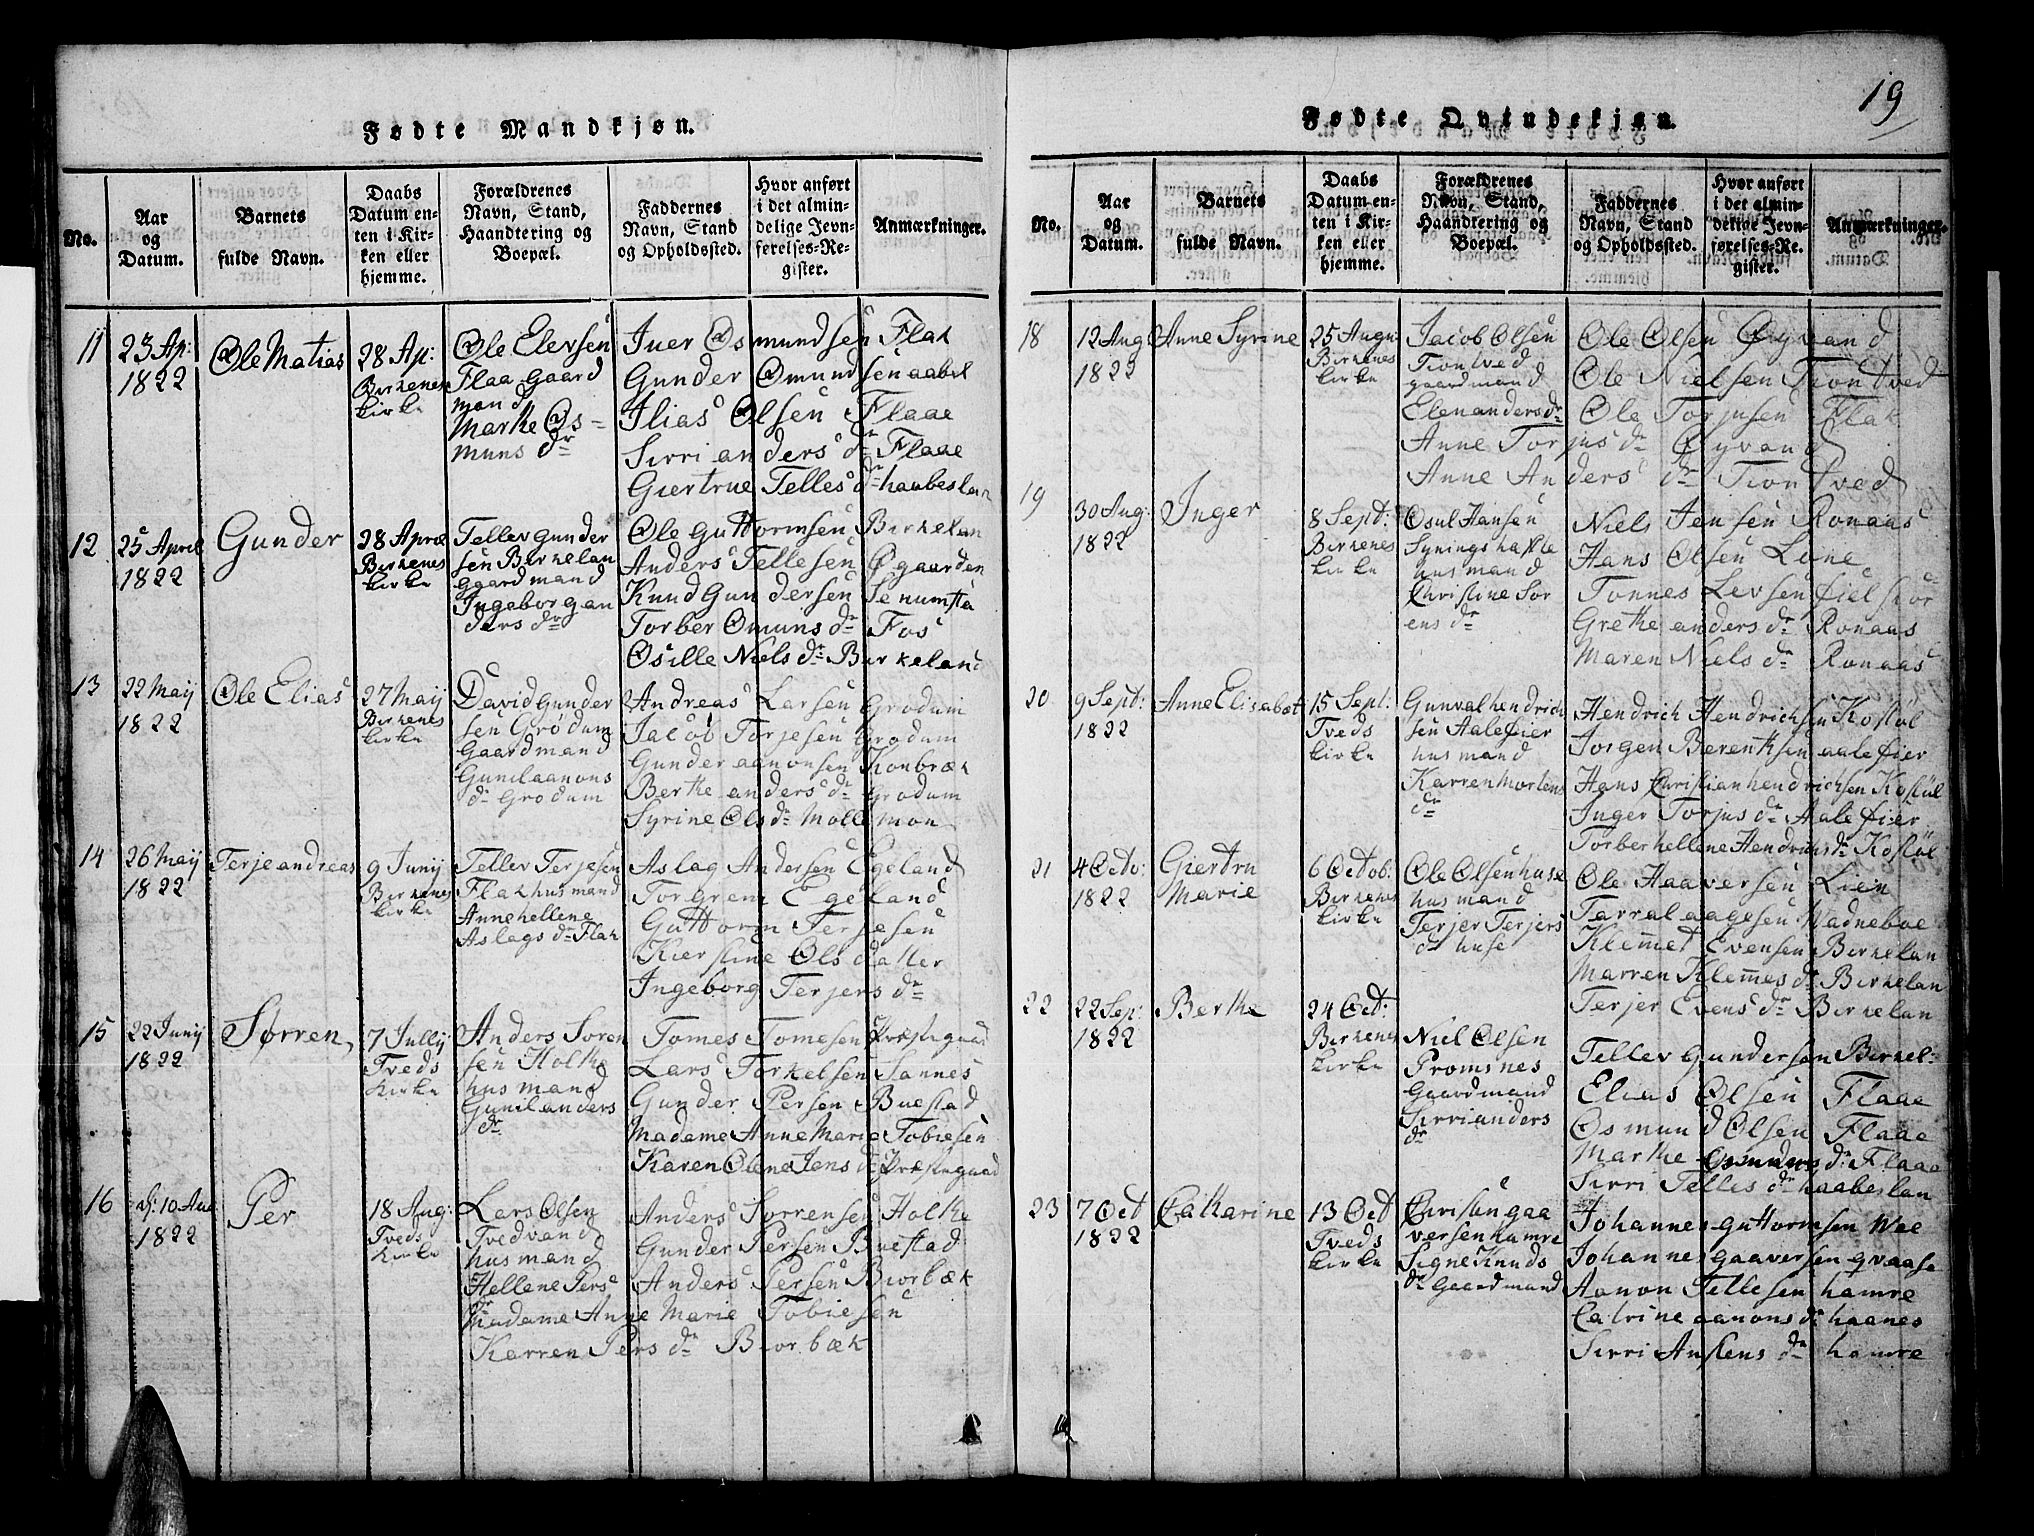 19
Fødte Mandkjøn.
No.
Aar
og
Datum.
Barnets
fulde Navn.
Daabs
Datum en-
ten i Kir-
ken eller
hjemme.
Forældrenes
Navn, Stand,
Haandtering og
Boepæl.
Faddernes
Navn, Stand
og Opholdssted.
Hvor anført
i det almin-
delige Jevn-
førelses-Re-
gister.
Anmærkninger.
11
23 Ap:
1822
Ole Matias
28 Ap:
Birkenes
kirke
Ole Elevsen
Flaa gaard
mand
Marthe Os-
muns dr
Iver Osmundsen Flak
Gunder Omundsen aabel
Ilias Olsen Flaae
Sirri anders dr Flaae
Giertrue Telles dr haabeslan
12
25 April
1822
Gunder
28 April
Birkenes
kirke
Tellev Gunder
sen Birkelan
gaardmand
Ingeborg an
ders dr
Ole Guttormsen Birkelan
Anders Tellesen Øgaarden
Knud Gundersen Senumsta
Torber Omuns dr Fos
Osille Niels dr Birkeland
13
22 Maij
1822
Ole Elias
27 Maij
Birkenes
kirke
David Gunder
sen Grødum
Gaardmand
Gunil aanons
dr Grodum
Andreas Larsen Grodum
Jacob Torjesen Grodum
Gunder aanonsen Konbræk
Berthe anders dr Grodum
Syrine Ols dr Mollemon
14
26 Maij
1822
Terje andreas
9 Junij
Birkenes
kirke
Tellev Terjesen
Flak husmand
Anne hellene
Aslags dr Flak
Aslag Andersen Egeland
Torgrem Egeland
Guttorm Terjesen
Kierstine Ols datter
Ingeborg Terjers dr
15
22 Junij
1822
Sørren
7 Jullij
Tveds
kirke
Anders Soren
sen Holthe
husmand
Gunil anders
dr
Tomes Tomesen Præstegaad
Lars Torkelsen Sannes
Gunder Persen Buestad
Madame Anne Marie Tobiesen
Karen Olene Jens dr Præstegaad
16
10 Aug
1822
Per
18 Aug:
Tveds
kirke
Lars Olsen
Tvedvand
husmand
Hellene Pers
dr
Anders Sørrensen Holthe
Gunder Persen Buestad
Anders Persen Biorbæk
Madame Anne Marie Tobiesen
Karren Pers dr Biorbæk
Fødte Qvindekjøn.
No.
Aar
og
Datum.
Barnets
fulde Navn.
Daabs
Datum en-
ten i Kir-
ken eller
hjemme.
Forældrenes
Navn, Stand,
Haandtering og
Boepæl.
Faddernes
Navn, Stand
og Opholdssted.
Hvor anført
i det almin-
delige Jevn-
førelses-Re-
gister.
Anmærkninger.
18
12 Aug
1822
Anne Syrine
25 Augu
Birkenes
kirke
Jacob Olsen
Tiontved
gaardmand
Elen anders dr
Ole Olsen Øyvand
Ole Nielsen Tiontved
Ole Torjusen Flak
Anne Torjus dr Øyvand
Anne Anders dr Tiontved
19
30 Aug:
1822
Inger
8 Sept:
Birkenes
kirke
Osul Hansen
husmand
Christine Sor
ens dr
Niels Jensen Ronaas
Hans Olsen Leine
Tonnes Levsen
Grethe anders dr Ronaas
Maren Niels dr Ronaas
20
9 Sept:
1822
Anne Elisabet
15 Sept:
Tveds
kirke
Gunval hendrich
sen Aalefier
husmand
Karren Mortens
dr
Hendrich Hendrichsen Kostøl
Jorgen Berentsen aalefier
Hans Christian hendrichsen Kostøl
Inger Torjus dr Aalefier
Torber hellene Hendrichs dr Kostøl
21
4 Octo:
1822
Giertru
Marie
6 Octob:
Birkenes
kirke
Ole Olsen huse
husmand
Terjer Terjers
dr huse
Ole Haaversen Lien
Tarral aagesen Vadneboe
Klemmet Evensen Birkelan
Marren Klemmes dr Birkelan
Terjer Evens dr Birkelan
22
22 Sep:
1822
Berthe
24 Oct:
Birkenes
kirke
Niel Olsen
Promsnes
Gaardmand
Sirri anders
dr
Tellev Gundersen Birkel:
Elias Olsen Flaae
Osmund Olsen Flaae
Marthe Osmunns dr Flaae
Sirri Telles dr haabeslan
23
7 Oct
1822
Catharine
13 Oct
Tveds
kirke
Chrisen gaa
versen hamre
Signe Knuds
dr Gaardmand
Johannes Guttormsen Wee
Johannes gaaversen qvaase
Aanon Tellesen hamre
Catrine aanons dr haanes
Sirri Anstens dr hamre